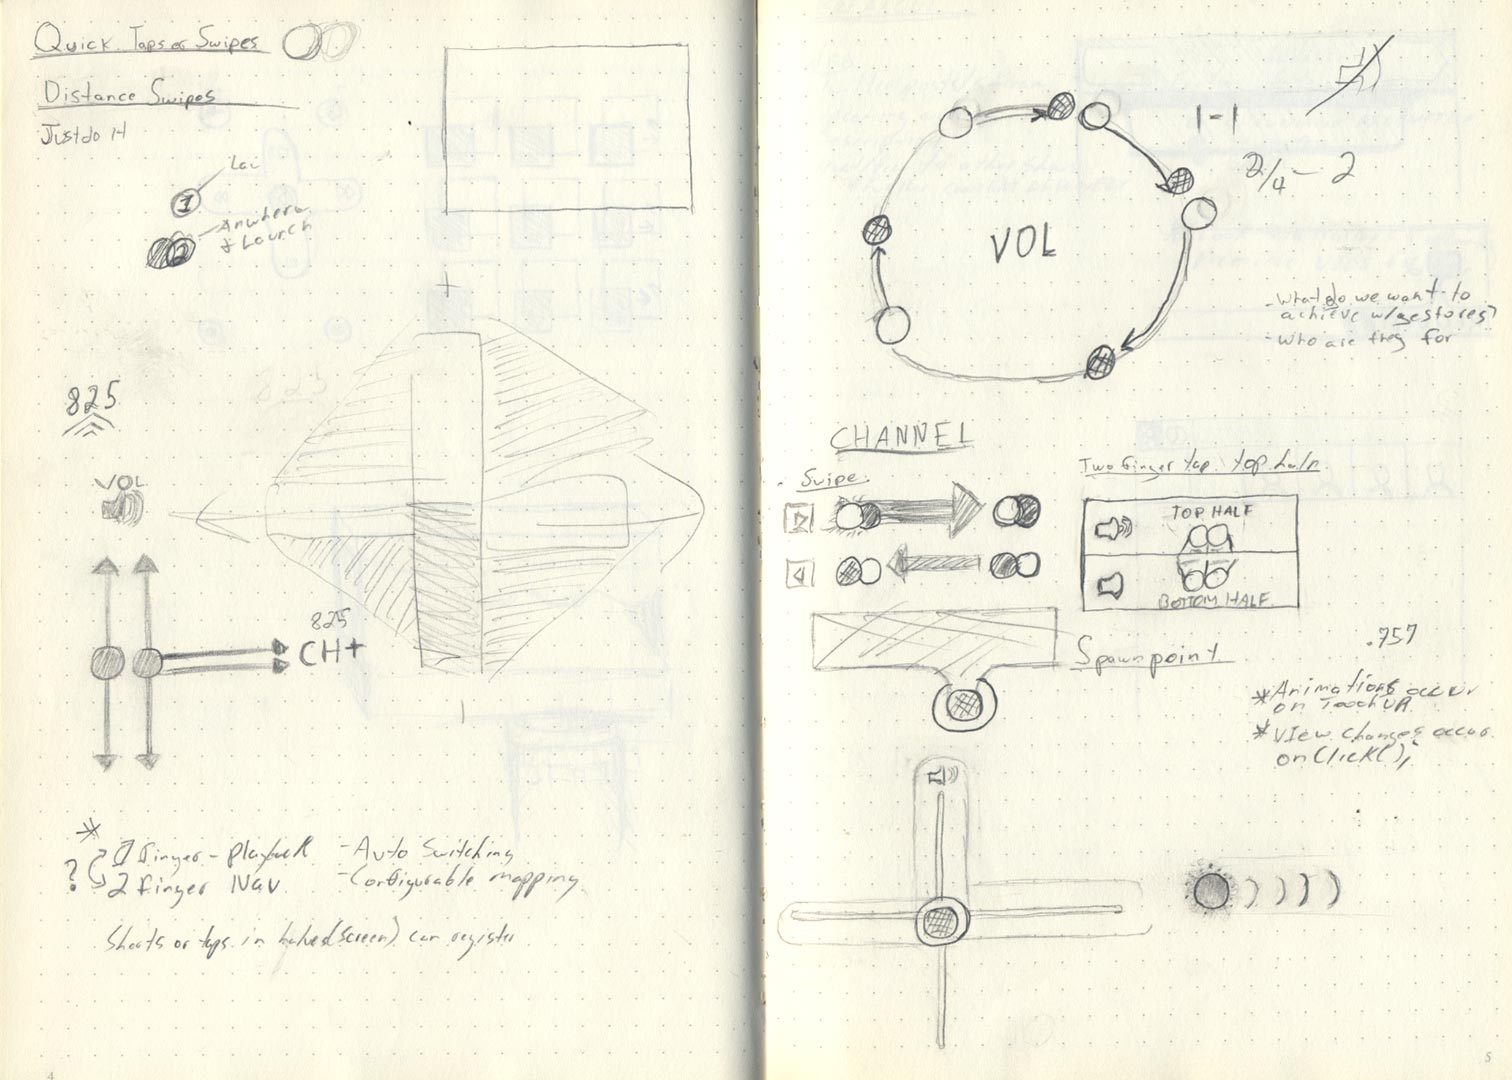 Quick Taps or Swipes
Distance Swipes
Just do it
1
2
& Launch
825
VOL
825
CH+
+
1 finger - Playback
- Auto Switching
? 2 finger Nav
- Configurable mapping
or taps in halves (screen) can register
4
VOL
1-1
2/4 - 2
- What do we want to
achieve w/gestores?
- Who are they for
CHANNEL
Swipe
Two finger tap top half
TOP HALF
BOTTOM HALF
Spawnpoint
.757
* Animations occur
on TouchUP
* View Changes occur
on Click();
5